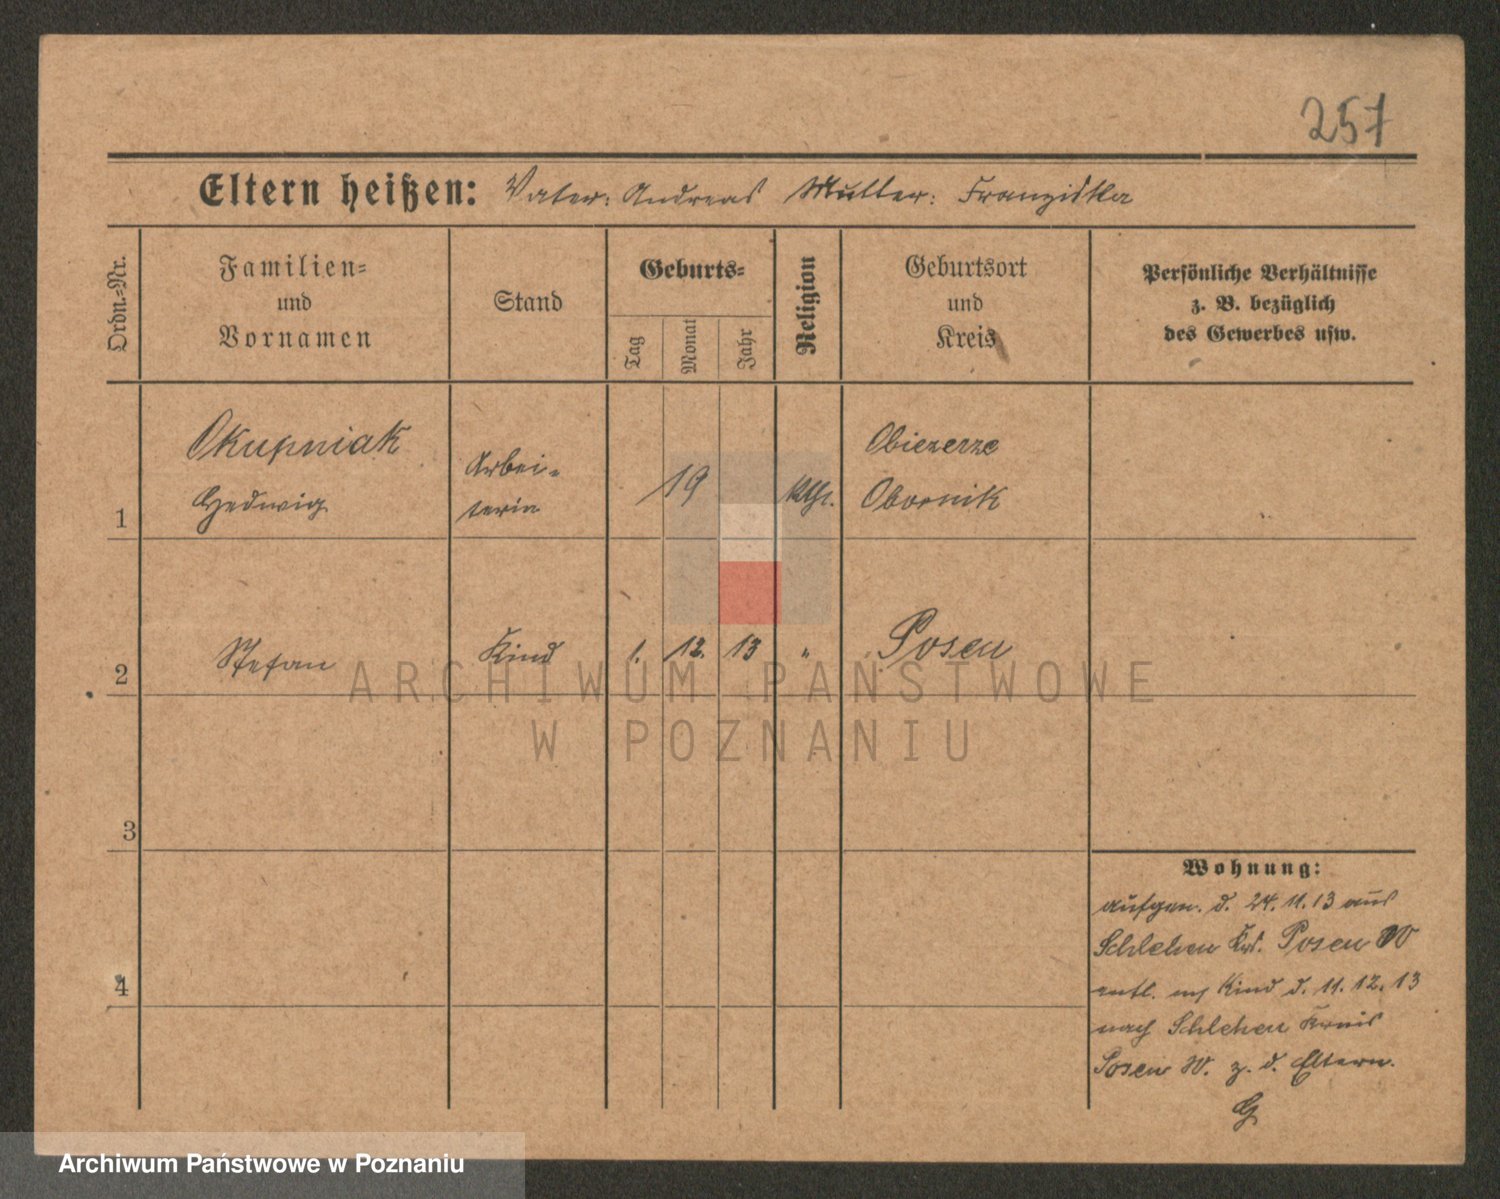 257
Eltern heißen: Vater: Andreas Mutter: Franziska
Ordn.-Nr.
Familien-
und
Vornamen
Stand
Geburts-
Tag
Monat
Jahr
Religion
Geburtsort
und
Kreis
Persönliche Verhältnisse
z. B. bezüglich
des Gewerbes usw.
1
Okupniak
Hedwig
Arbei-
terin
19
kth.
Obiezerze
Obornik
2
Stefan
Kind
1. 12. 13
"
Posen
3
4
Wohnung:
aufgen. d. 24. 11. 13 aus
Schlehen Krs. Posen W
entl. m Kind d. 11. 12. 13
nach Schlehen Kreis
Posen W. z. d. Eltern.
G
ARCHIWUM PAŃSTWOWE
W POZNANIU
Archiwum Państwowe w Poznaniu